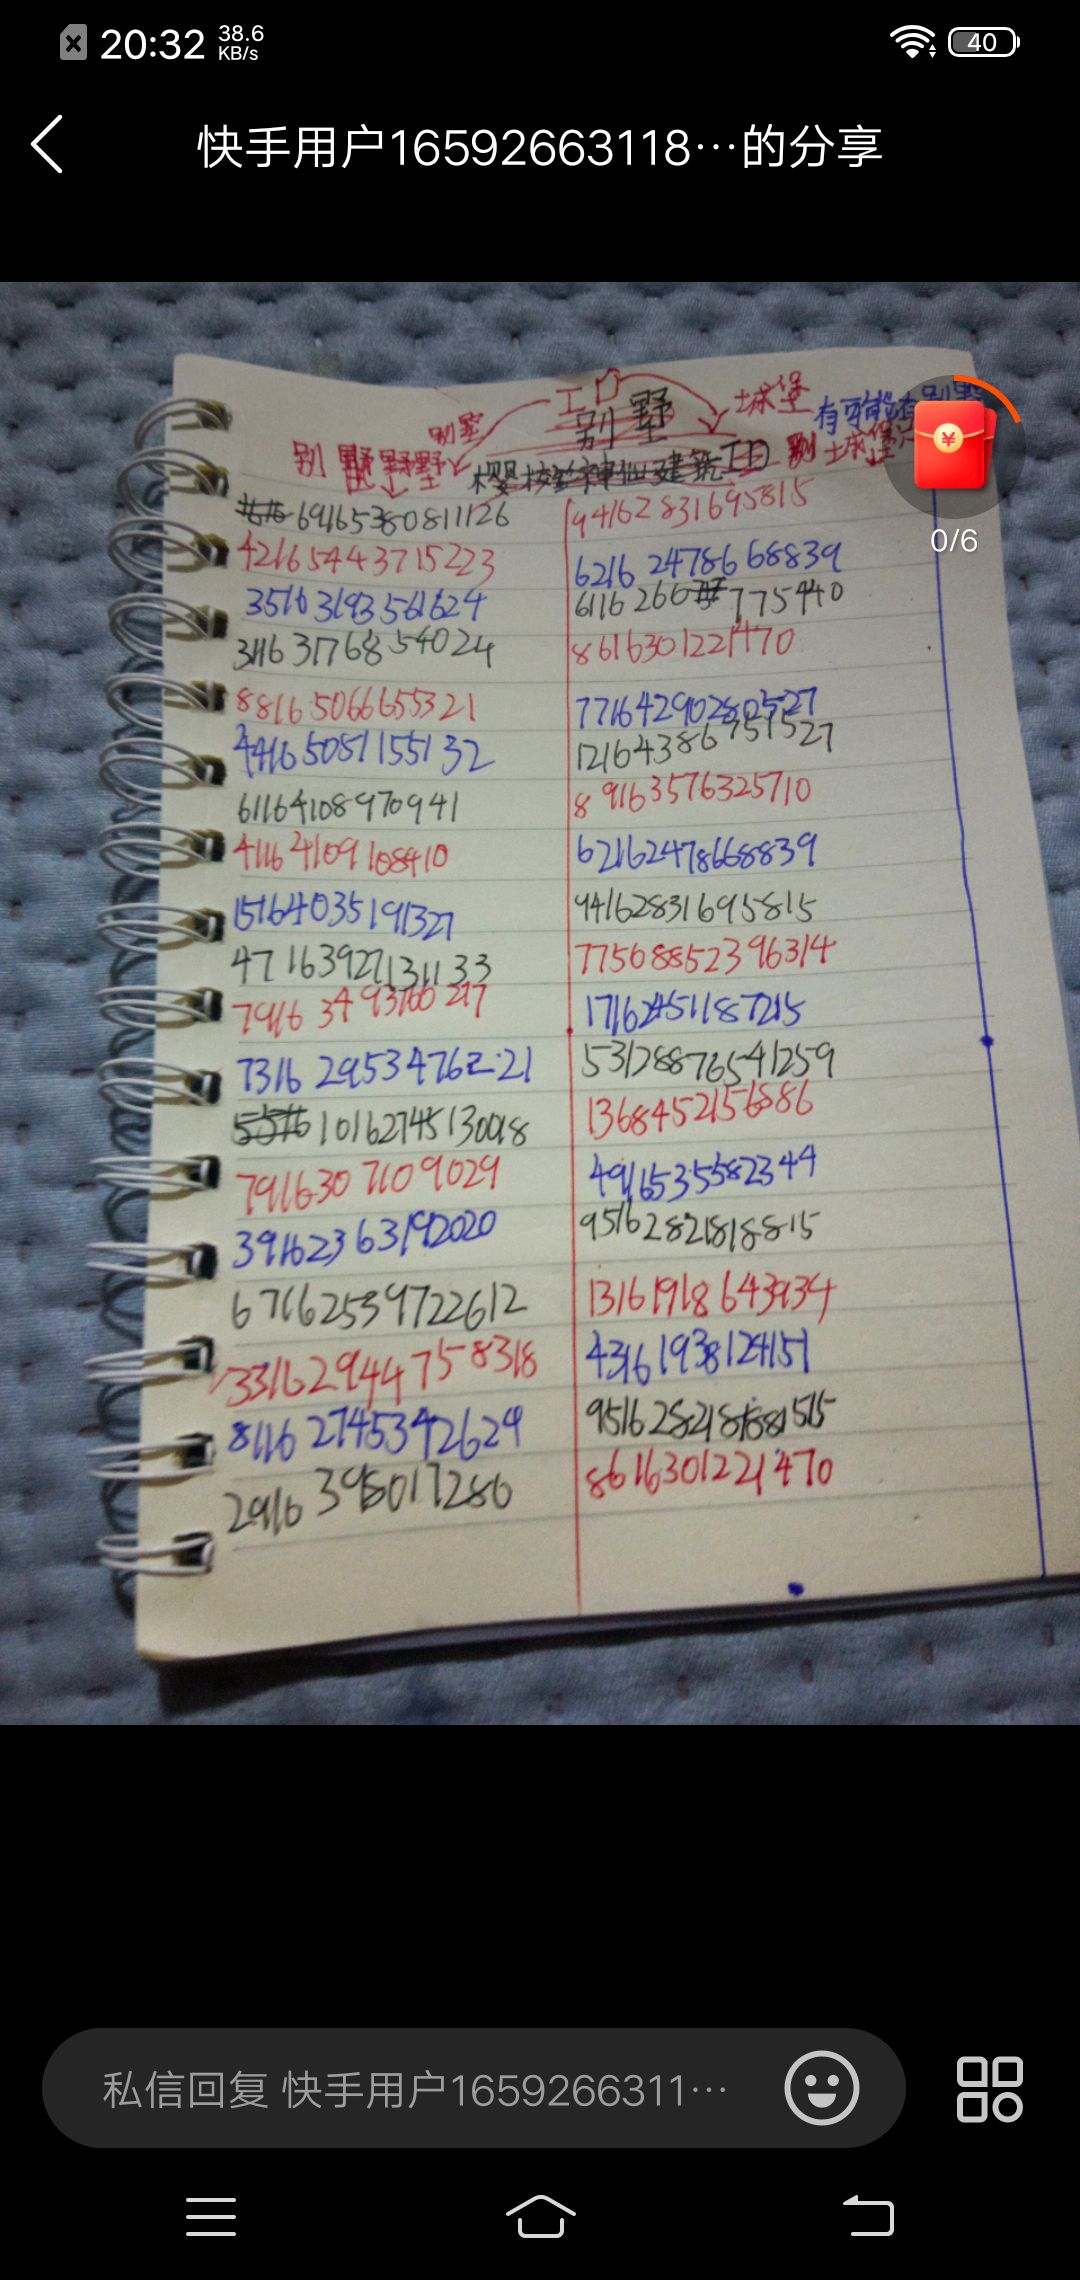 20:32 38.6 KB/s 40
快手用户16592663118…的分享
工口
别墅 别墅 城堡 有可能有别墅
别墅野野墅 樱校 神仙建筑ID 别 城堡
0/6
69165380811126
42165443715223
35163193561624
31163176854024
88165066655321
44165087155132
61164108970941
41164109108410
15164035191327
47163927131133
79163493760217
73162953476221
10162745130018
7916307109029
39162363192020
67162539722612
33162944758318
81162745342624
2916395017286
94162831695815
62162478668839
6116266775440
8616301221470
77164290280527
12164386751527
89163576325710
62162478668839
94162831695815
77568852396314
17162451187215
53128876541259
1368452156886
49165355582344
95162821818815
13161918643934
43161938124151
951628218181515
8616301221470
私信回复 快手用户1659266311…